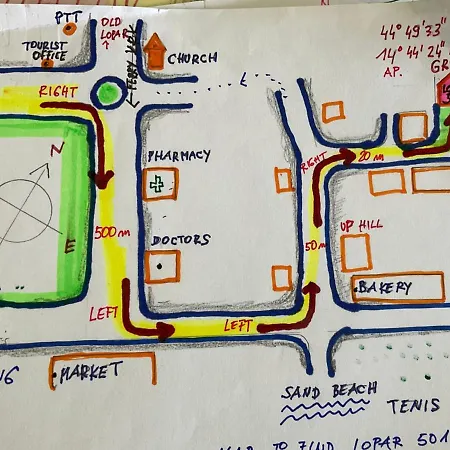 PTT
OLD
LOPAR
44° 49'33"
14° 44' 24"
AP.
GR
TOURIST
OFFICE
CHURCH
RIGHT
PHARMACY
RIGHT
20 m
N
500 m
DOCTORS
50 m
UP HILL
E
BAKERY
LEFT
LEFT
MARKET
SAND BEACH
TENIS
TO FIND LOPAR 501